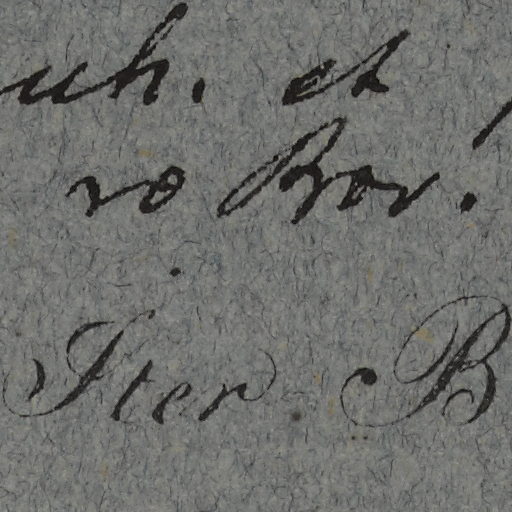 uh. et
ro Bor.
Iter B